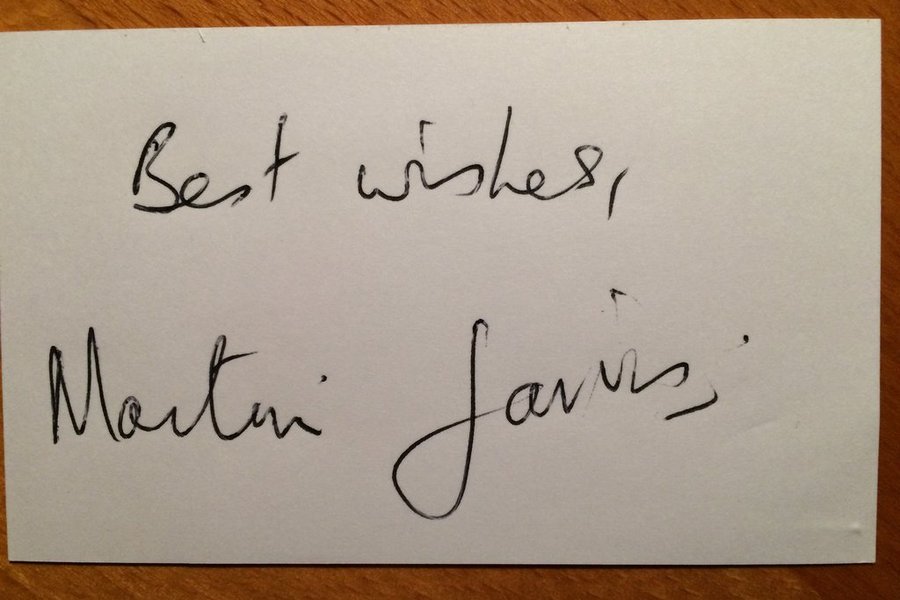 Best wishes,
Martin Jarvis